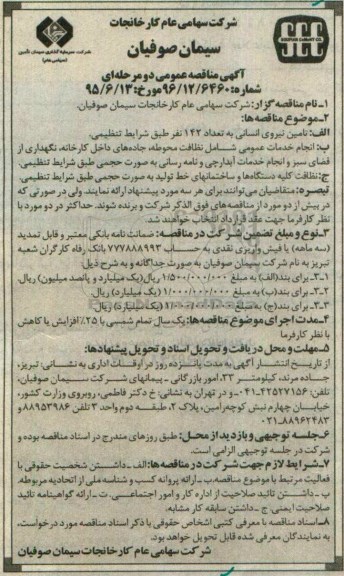 شرکت سهامی عام کارخانجات
سیمان صوفیان
شرکت سرمایه گذاری سیمان تأمین
(سهامی عام)
SUFIAN CEMENT CO.
آگهی مناقصه عمومی دو مرحله‌ای
شماره: ۹۶/۱۲/۶۴۶۰ مورخ: ۹۵/۶/۱۳
۱-نام مناقصه گزار: شرکت سهامی عام کارخانجات سیمان صوفیان.
۲-موضوع مناقصه‌ها:
الف: تامین نیروی انسانی به تعداد ۱۴۲ نفر طبق شرایط تنظیمی.
ب: انجام خدمات عمومی شـــامل نظافت محوطه، جاده‌های داخل کارخانه، نگهداری از
فضای سبز و انجام خدمات آبدارچی و نامه رسانی به صورت حجمی طبق شرایط تنظیمی.
ج: نظافت کلیه دستگاه‌ها و ساختمانهای خط تولید به صورت حجمی طبق شرایط تنظیمی.
تبصره: متقاضیان می‌توانند برای هر سه مورد پیشنهاد ارائه نمایند. ولی در صورتی که
در بیش از دو مورد از مناقصه‌های فوق الذکر شرکت و برنده شوند. حداکثر در دو مورد با
نظر کارفرما جهت عقد قرارداد انتخاب خواهند شد.
۳-نوع و مبلغ تضمین شرکت در مناقصه: ضمانت نامه بانکی معتبر و قابل تمدید
(سه ماهه) یا فیش واریزی نقدی به حســاب ۷۷۷۸۸۸۹۹۳ بانک رفاه کارگران شعبه
تبریز به نام شرکت سیمان صوفیان به صورت جداگانه و به شرح ذیل:
۳-۱- برای بند(الف) به مبلغ ۱/۵۰۰/۰۰۰/۰۰۰ ریال(یک میلیارد و پانصد میلیون) ریال.
۳-۲- برای بند(ب) به مبلغ ۱/۰۰۰/۰۰۰/۰۰۰ (یک میلیارد) ریال.
۳-۳- برای بند(ج) به مبلغ ۱/۰۰۰/۰۰۰/۰۰۰ (یک میلیارد) ریال.
۴-مدت اجرای موضوع مناقصه‌ها: یک سال تمام شمسی با ۲۵٪ افزایش یا کاهش
با نظر کارفرما
۵-مهلت و محل دریافت و تحویل اسناد و تحویل پیشنهادها:
از تاریخ انتشار آگهی به مدت پانــزده روز در اوقــات اداری به نشــانی: تبریز،
جاده مرند، کیلومتر ۳۳، امور بازرگانی - پیمانهای شــرکت ســیمان صوفیان،
تلفن: ۴۲۵۲۷۱۵۶-۰۴۱ و در تهران به نشانی: خ دکتر فاطمی، روبروی وزارت کشور،
خیابان چهارم نبش کوچه رامین، پلاک ۲، طبقه دوم واحد ۳ تلفن: ۸۸۹۵۳۹۸۶ و
۸۸۹۶۲۴۸۳-۰۲۱
۶-جلسه توجیهی و بازدید از محل: طبق روزهای مندرج در اسناد مناقصه بوده و
شرکت در جلسه توجیهی الزامی است.
۷-شرایط لازم جهت شرکت در مناقصه‌ها: الف-داشــتن شخصیت حقوقی با
فعالیت مرتبط با موضوع مناقصه.ب-ارائه پروانه کسب و شناسه ملی از اتحادیه مربوطه.
پ-داشــتن تائید صلاحیت از اداره کار و امور اجتماعــی.ت-ارائه گواهینامه تائید
صلاحیت ایمنی. ج-داشتن سابقه کار مشابه.
۸-اسناد مناقصه با معرفی کتبی اشخاص حقوقی با ذکر اسناد مناقصه مورد درخواست،
به نمایندگان معرفی شده قابل تحویل خواهد بود.
شرکت سهامی عام کارخانجات سیمان صوفیان